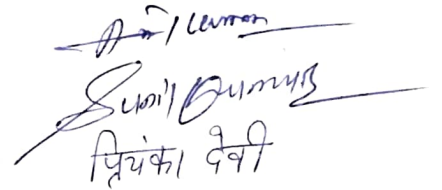 Anil Kumar
Sunil Kumar
प्रियंका देवी